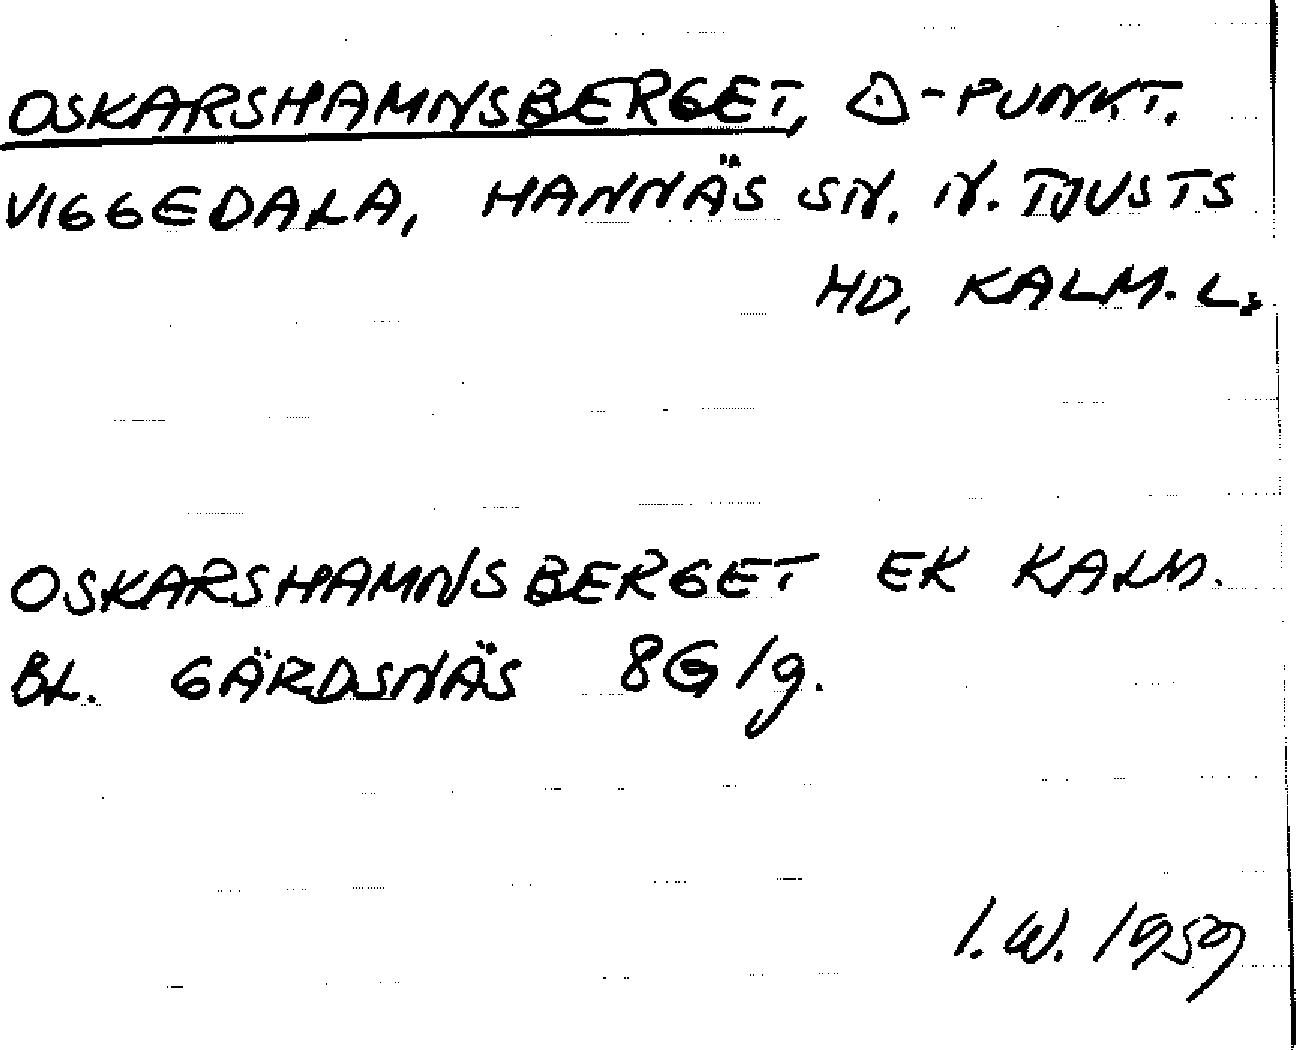 OSKARSHAMNSBERGET, △-PUNKT.
VIGGEDALA, HANNÄS SN. N. TJUSTS
HD, KALM. L.
OSKARSHAMNSBERGET EK KALM.
BL. GÄRDSNÄS 8G/g.
I.W. 1959